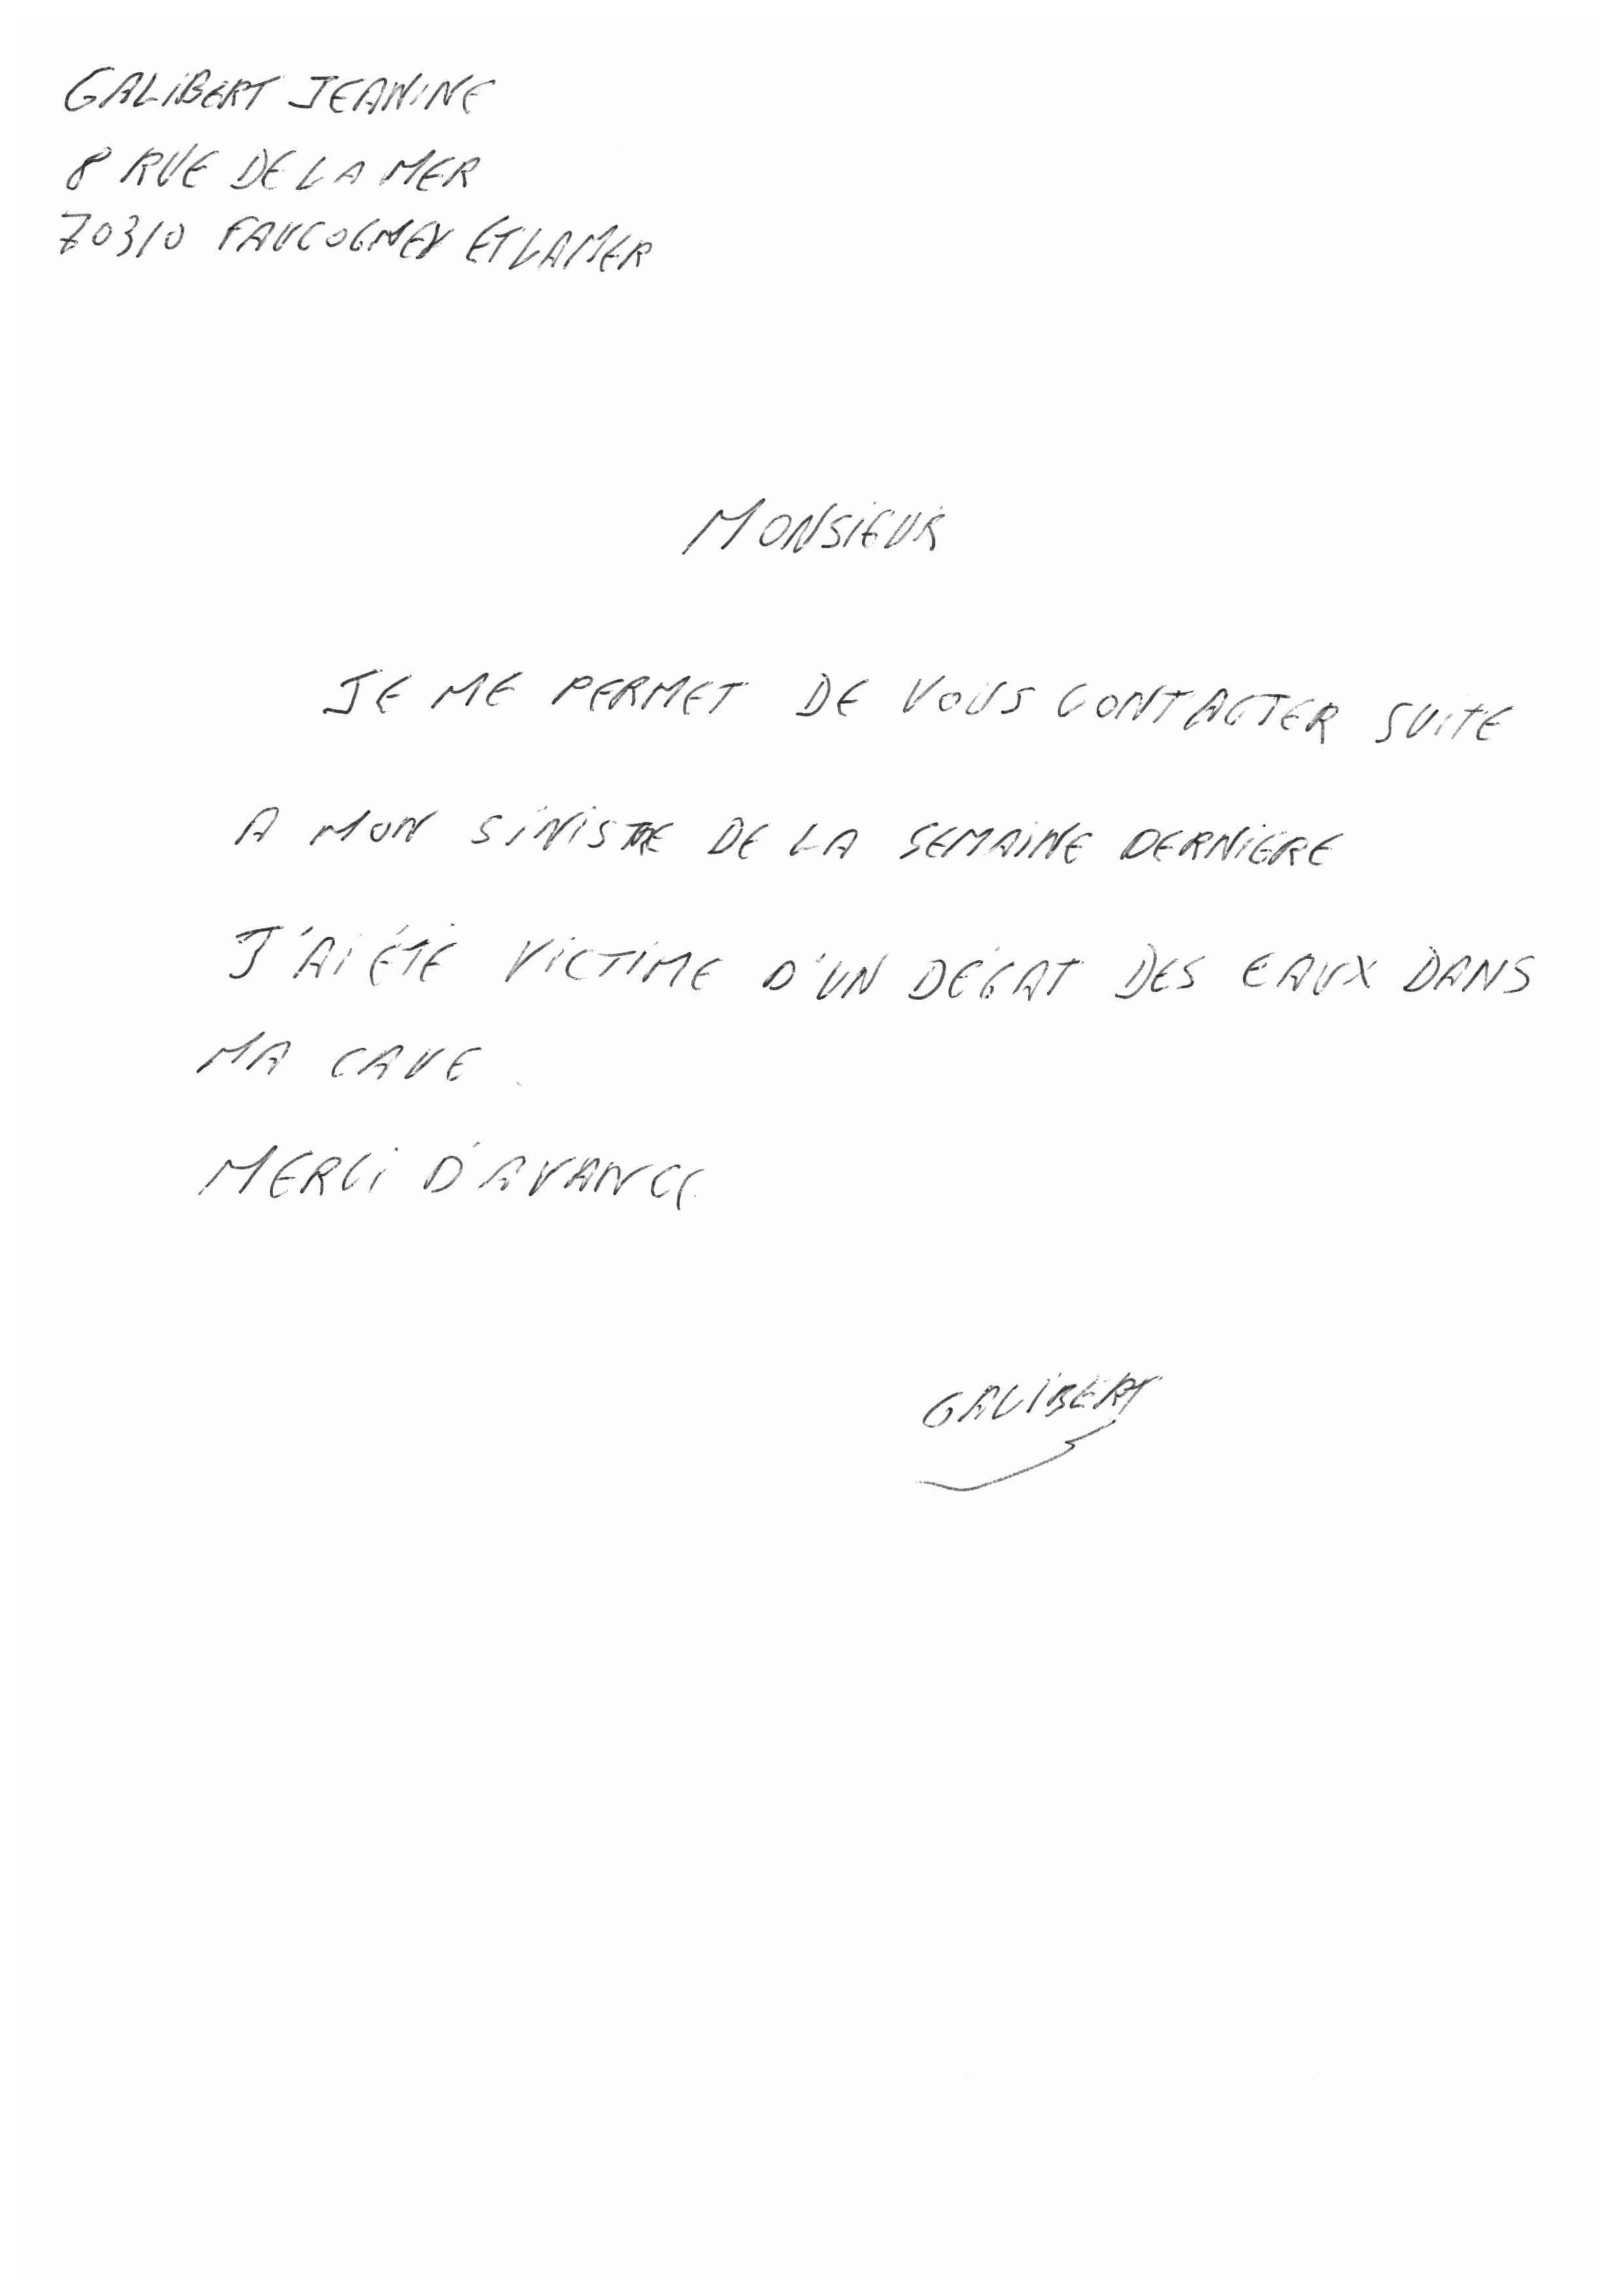 GALIBERT JEANINE
8 RUE DE LA MER
70310 FAUCOGNEY ET LA MER
MONSIEUR
JE ME PERMET DE VOUS CONTACTER SUITE
A MON SINISTRE DE LA SEMAINE DERNIERE
J'AI ÉTÉ VICTIME D'UN DÉGAT DES EAUX DANS
MA CAVE.
MERCI D'AVANCE
GALIBERT